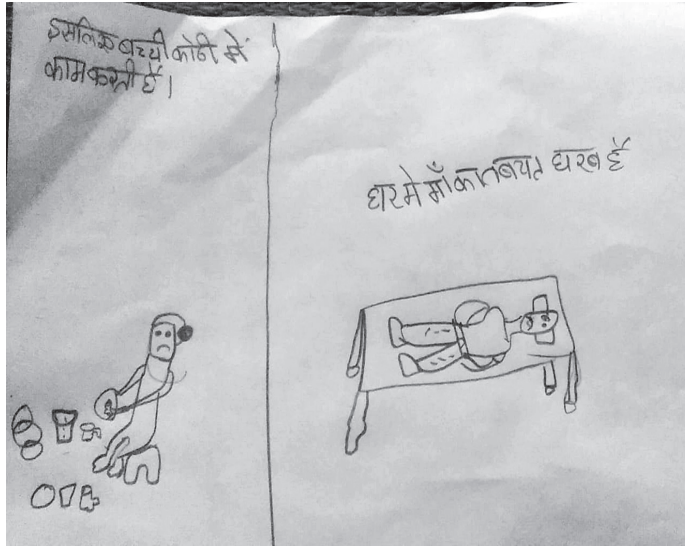 इसलिऐ बच्ची कोठी में
काम करती है।
घर मे माँ का तबयत घराब है